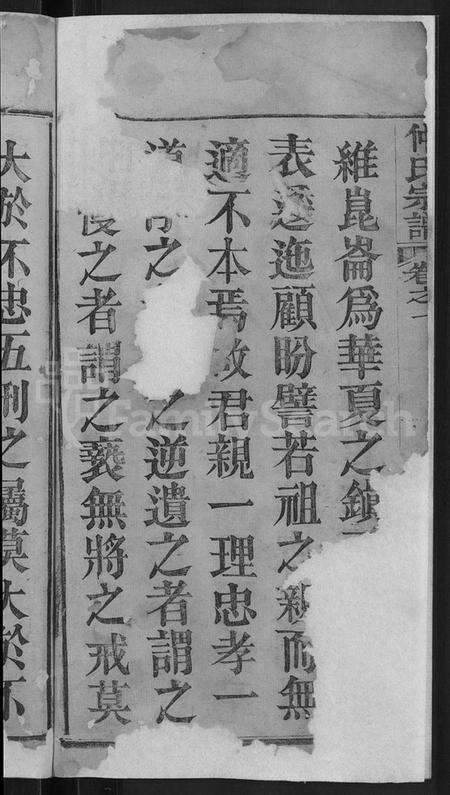 何氏宗譜 卷之一
維崑崙爲華夏之鎮
表邐迤顧盼譬若祖之親而無
適不本焉故君親一理忠孝一
道 之 之逆遺之者謂之
慢之者謂之褻無將之戒莫
大於不忠五刑之屬莫大於不
FamilySearch